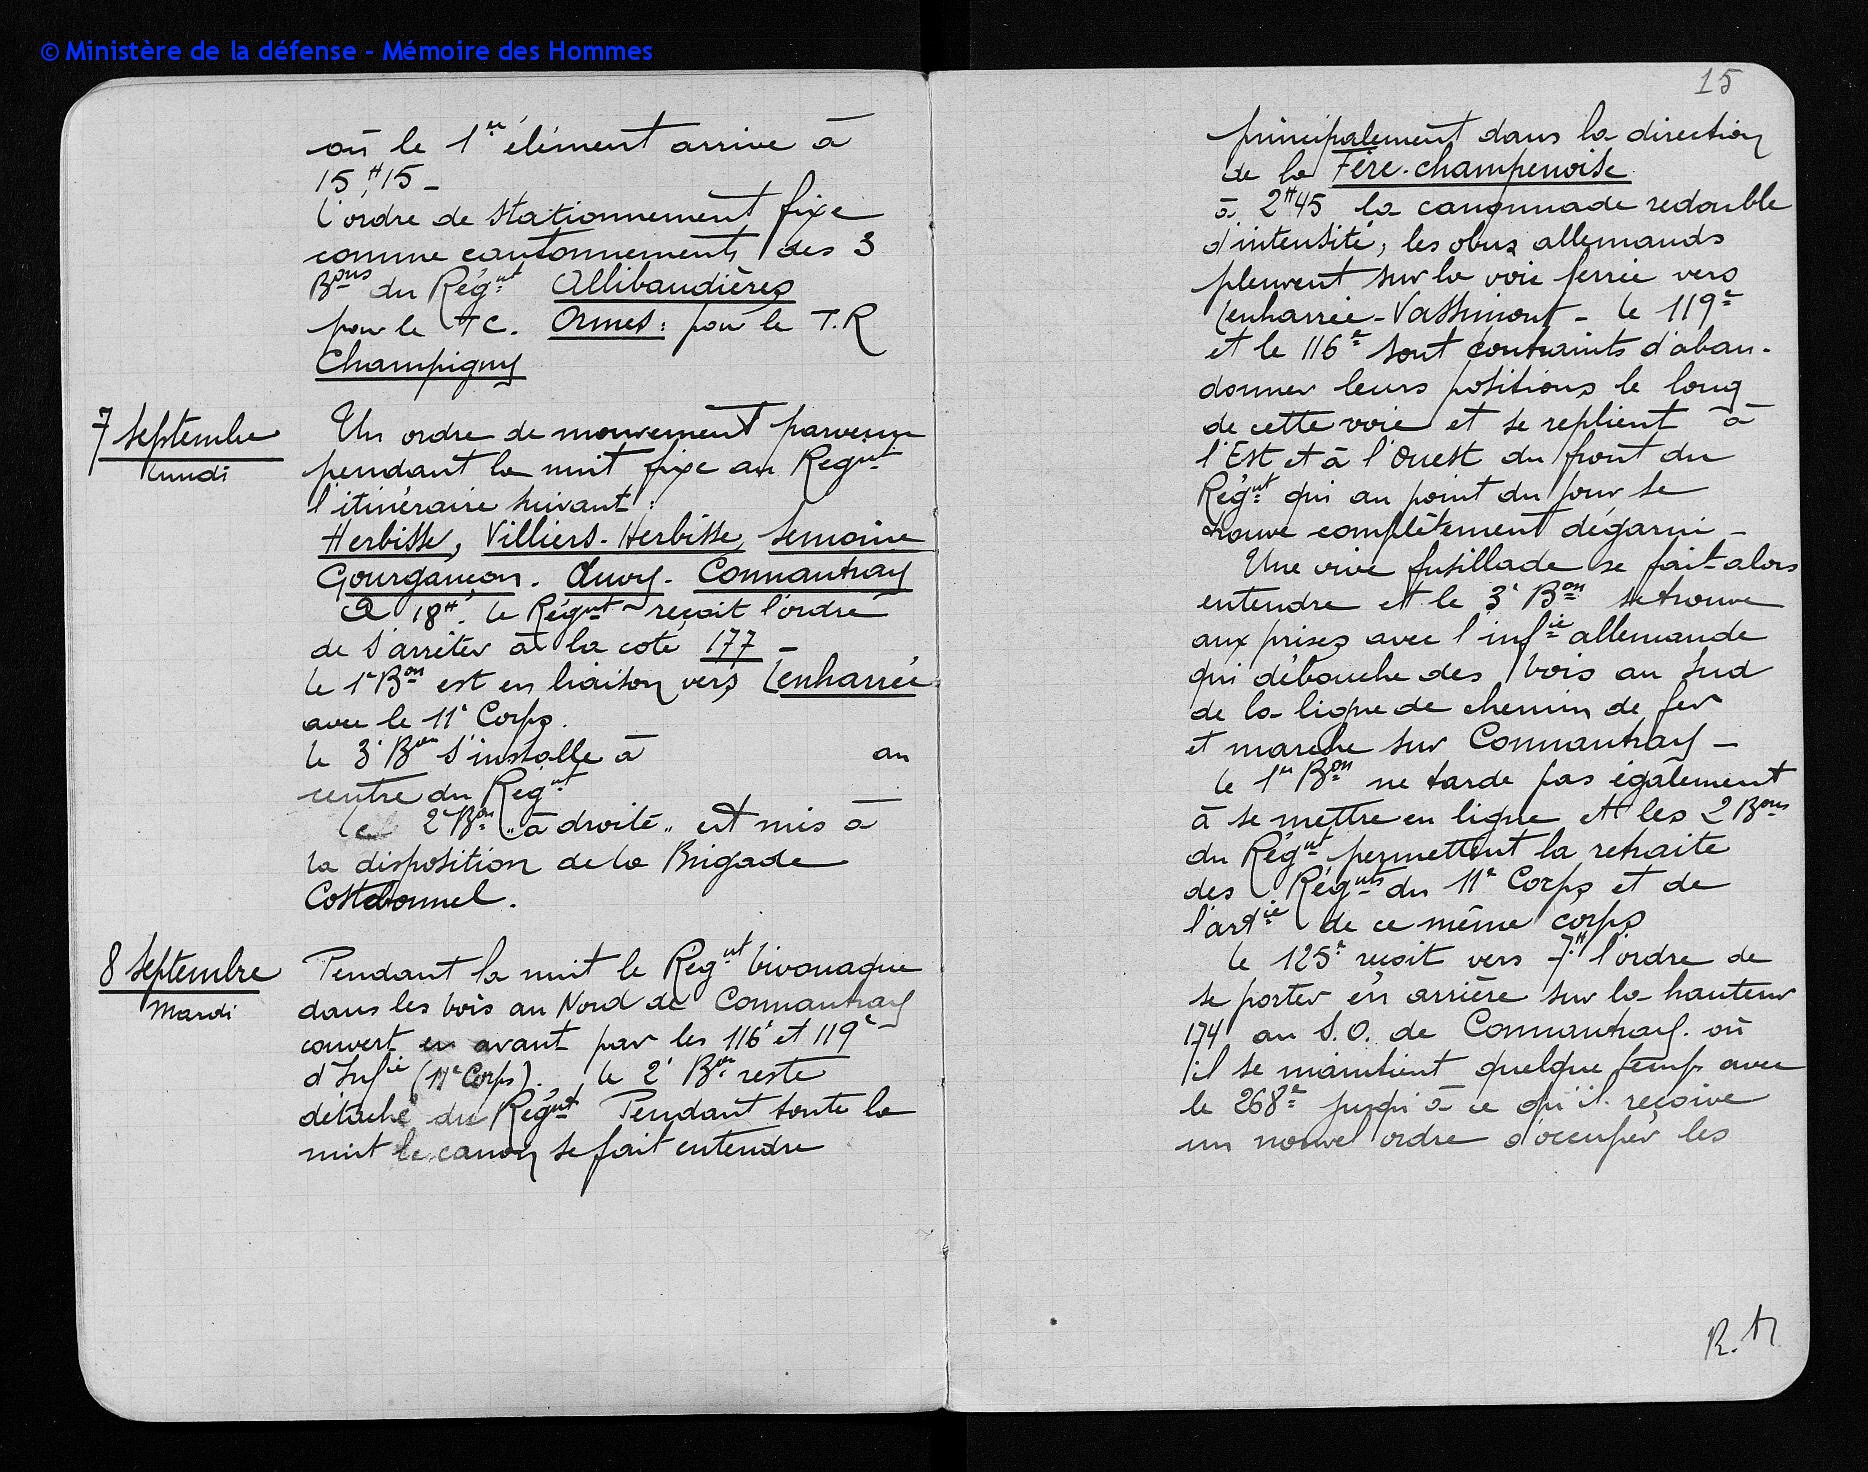 © Ministère de la défense - Mémoire des Hommes
où le 1er élément arrive à
15H,15 -
l'ordre de stationnement fixe
comme cantonnements des 3
Bons du Régnt Allibaudières
pour le TC. Ormes : pour le T.R
Champigny
7 Septembre
lundi
Un ordre de mouvement parvenu
pendant la nuit fixe au Regnt
l'itinéraire suivant :
Herbisse, Villiers-Herbisse, Semoine
Gourgançon. Œuvy. Connantray
A 18H. le Régnt reçoit l'ordre
de s'arrêter à la cote 177 -
le 1er Bon est en liaison vers Lenharrée
avec le 11e Corps.
le 3e Bon s'installe à au
centre du Régnt
le 2e Bon "à droite" est mis à
la disposition de la Brigade
Costebonnel.
8 Septembre
Mardi
Pendant la nuit le Regnt bivouaque
dans les bois au Nord de Connantray
couvert en avant par les 116e et 119e
d'Infie (11e Corps). le 2e Bon reste
détaché du Régnt Pendant toute la
nuit le canon se fait entendre
15
principalement dans la direction
de la Fère-champenoise
à 2H45 la canonnade redouble
d'intensité, les obus allemands
pleuvent sur la voie ferrée vers
Lenharrée-Vassimont - le 119e
et le 116e sont contraints d'aban-
donner leurs positions le long
de cette voie et se replient à
l'Est et à l'Ouest du front du
Régnt qui au point du jour se
trouve complètement dégarni -
Une vive fusillade se fait alors
entendre et le 3e Bon se trouve
aux prises avec l'infie allemande
qui débouche des bois au Sud
de la ligne de chemin de fer
et marche sur Connantray -
le 1er Bon ne tarde pas également
à se mettre en ligne et les 2 Bons
du Régnt permettent la retraite
des Régnts du 11e Corps et de
l'artie de ce même corps
le 125e reçoit vers 7H l'ordre de
se porter en arrière sur la hauteur
174 au S.O. de Connantray. où
il se maintient quelque temps avec
le 268e jusqu'à ce qu'il reçoive
un nouvel ordre d'occuper les